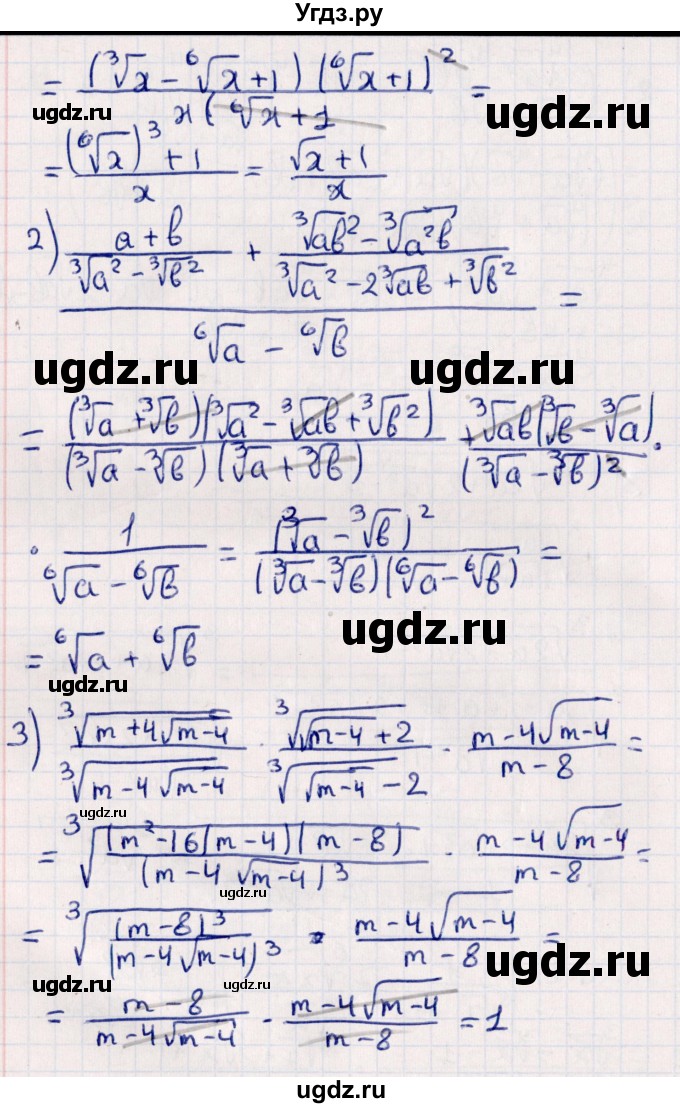 Угдз.ру
= ((∛x − ⁶√x + 1)(⁶√x + 1)²) / (x(⁶√x + 1) =
ugdz.ru ugdz.ru
= ((⁶√x)³ + 1) / x = (√x + 1) / x
2) ((a + b) / (∛a² − ∛b²) + (∛ab² − ∛a²b) / (∛a² − 2∛ab + ∛b²)) / (⁶√a − ⁶√b) =
ugdz.ru ugdz.ru
= ((∛a + ∛b)(∛a² − ∛ab + ∛b²)) / ((∛a − ∛b)(∛a + ∛b)) + (∛ab(∛b − ∛a)) / (∛a − ∛b)² ·
· 1 / (⁶√a − ⁶√b) = (∛a − ∛b)² / ((∛a − ∛b)(⁶√a − ⁶√b)) =
ugdz.ru
= ⁶√a + ⁶√b
ugdz.ru
3) ∛(m + 4√(m−4)) / ∛(m − 4√(m−4)) · ∛(√(m−4) + 2) / ∛(√(m−4) − 2) · (m − 4√(m−4)) / (m − 8) =
ugdz.ru
= ∛((m² − 16(m − 4)(m − 8) / (m − 4√(m−4))³) · (m − 4√(m−4)) / (m − 8) =
ugdz.ru
= ∛((m − 8)³ / (m − 4√(m−4))³) · (m − 4√(m−4)) / (m − 8) =
ugdz.ru ugdz.ru ugdz.ru
= (m − 8) / (m − 4√(m−4)) · (m − 4√(m−4)) / (m − 8) = 1
ugdz.ru